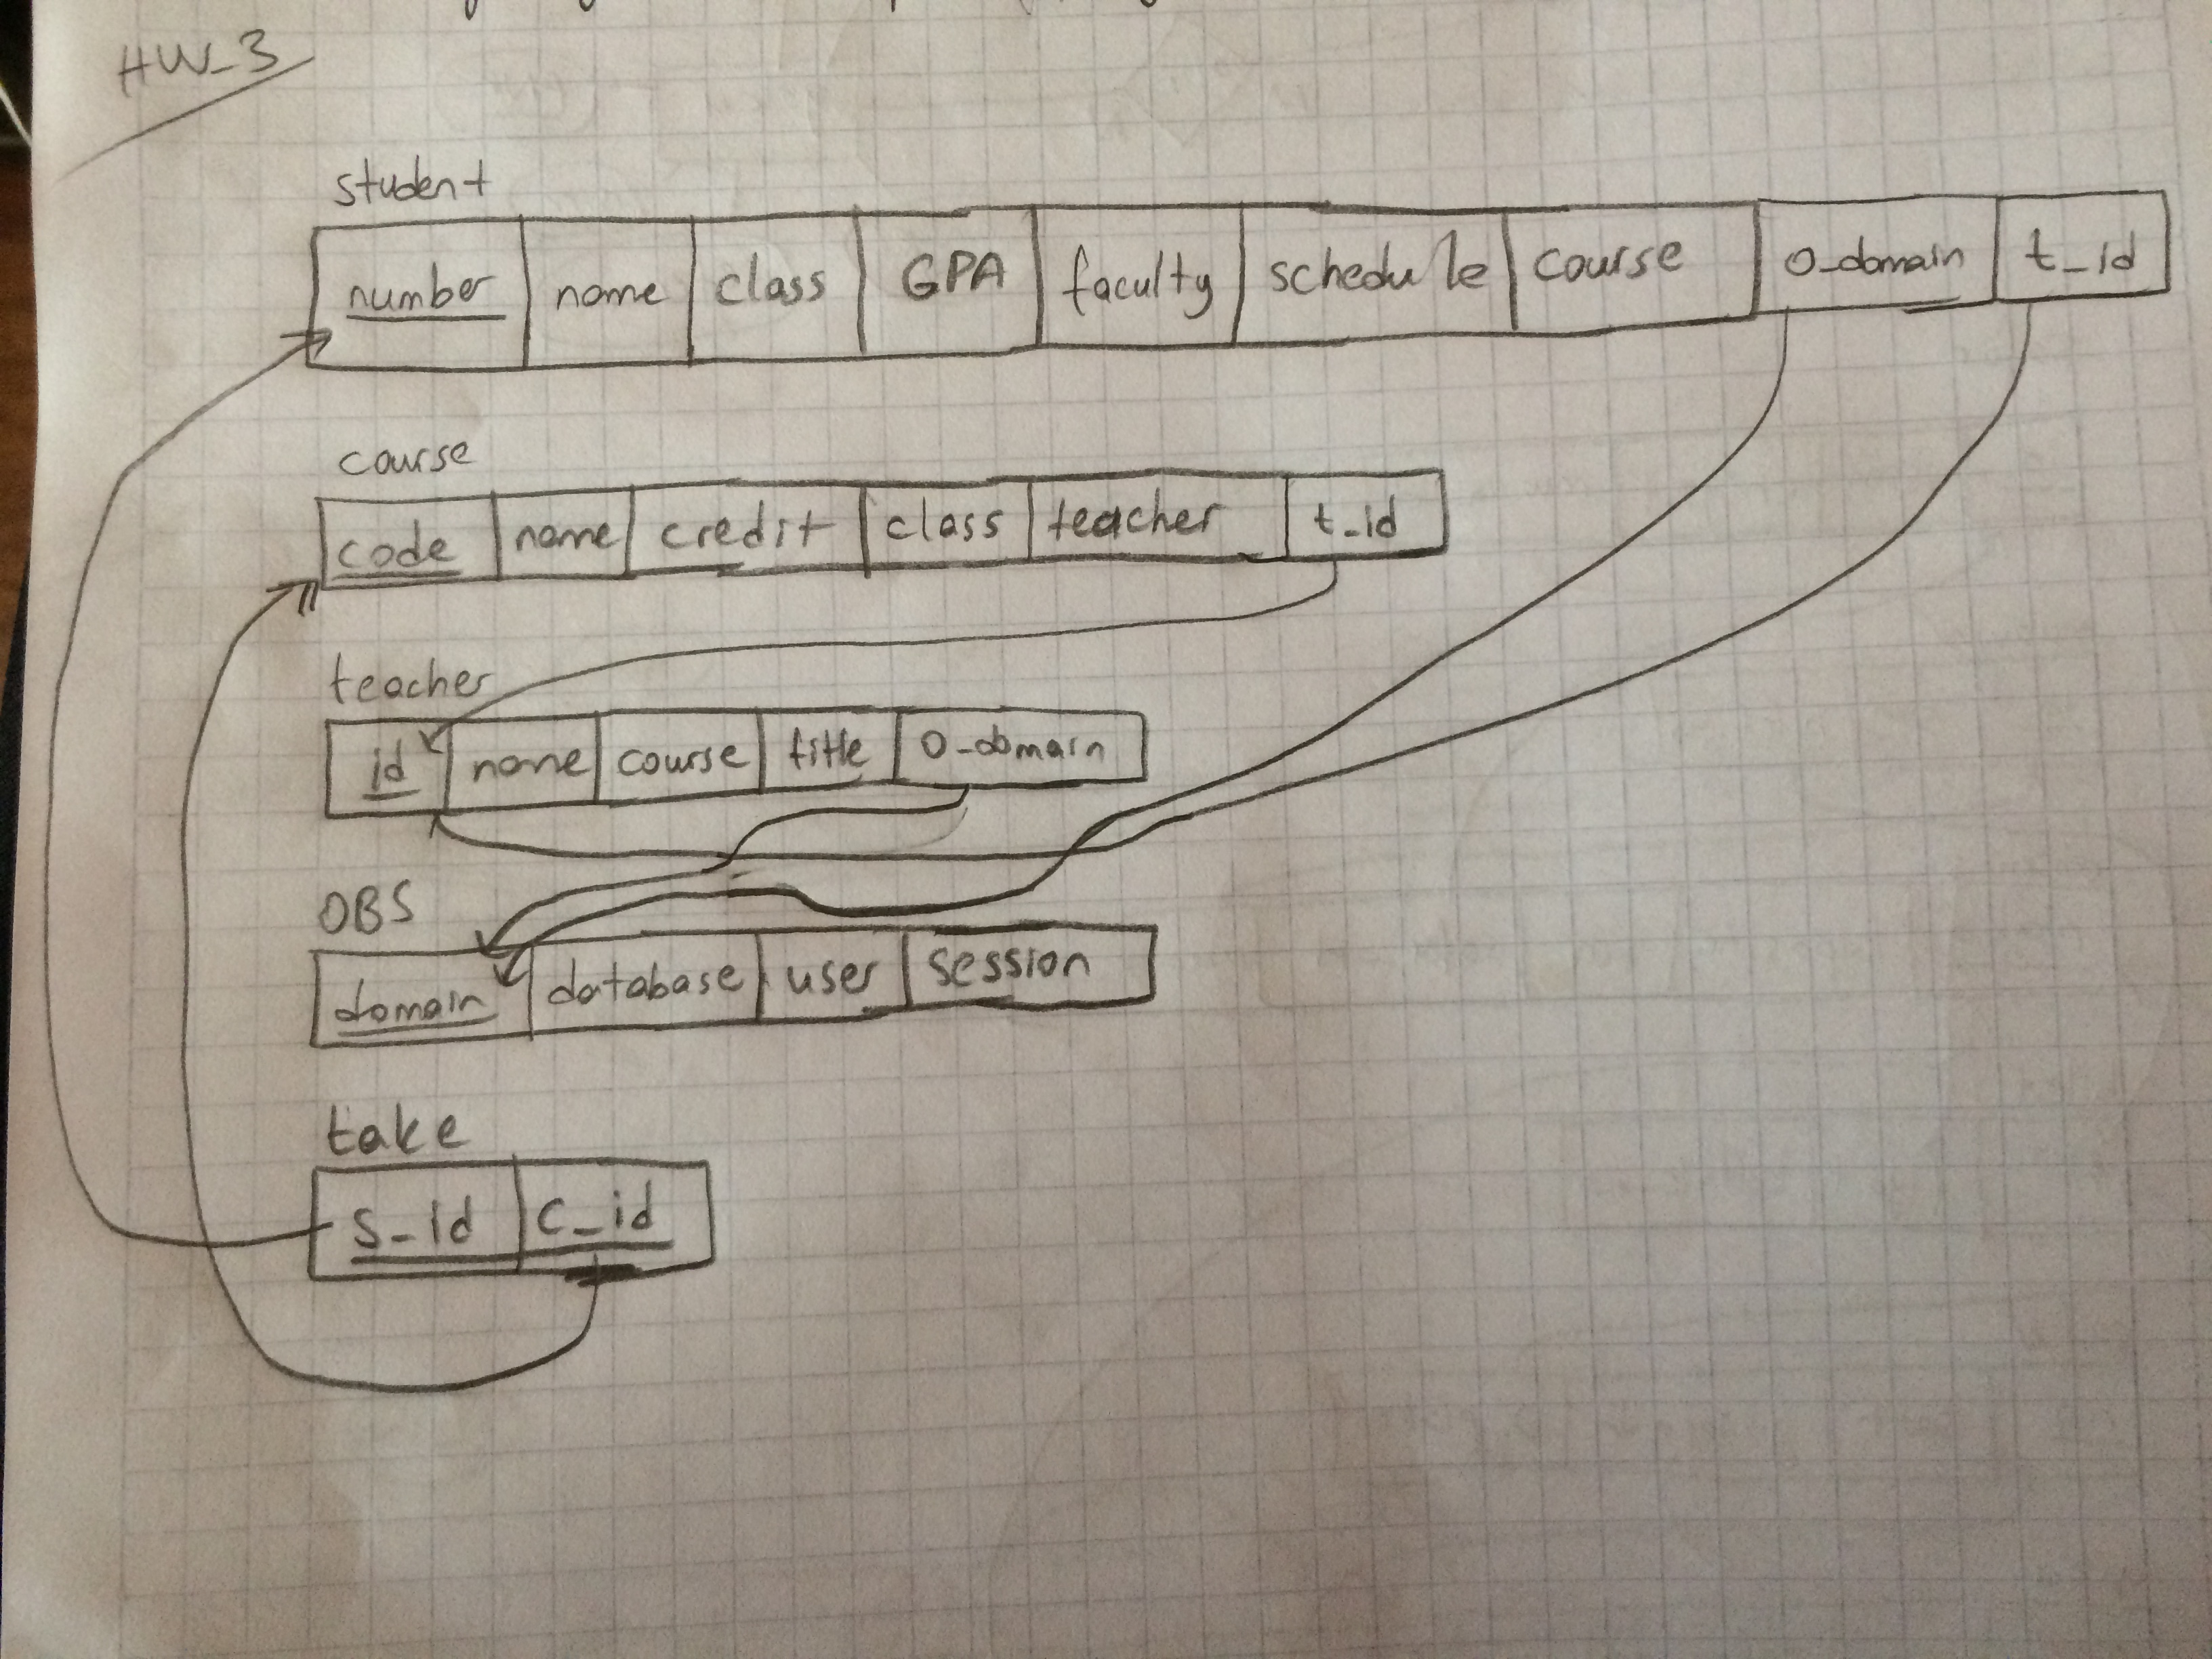 HW_3
student
number name class GPA faculty schedule course o_domain t_id
course
code name credit class teacher t_id
teacher
id name course title o_domain
OBS
domain database user session
take
s_id c_id